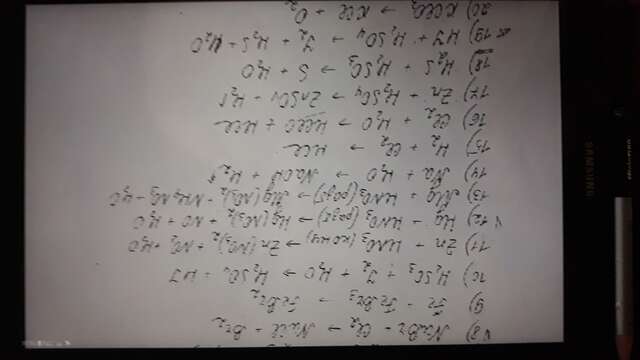 8) NaBr + Cl₂ → NaCl + Br₂
9) Fe + FeBr₃ → FeBr₂
10) H₂SO₃ + I₂ + H₂O → H₂SO₄ + HI
11) Zn + HNO₃ (конц) → Zn(NO₃)₂ + NO₂ + H₂O
12) Hg + HNO₃ (разб) → Hg(NO₃)₂ + NO + H₂O
13) Mg + HNO₃ (разб) → Mg(NO₃)₂ + NH₄NO₃ + H₂O
14) Na + H₂O → NaOH + H₂↑
15) H₂ + Cl₂ → HCl
16) Cl₂ + H₂O → HClO + HCl
17) Zn + H₂SO₄ → ZnSO₄ + H₂↑
18) H₂S + H₂SO₃ → S + H₂O
19) HI + H₂SO₄ → I₂ + H₂S + H₂O
20) KClO₃ → KCl + O₂
SAMSUNG